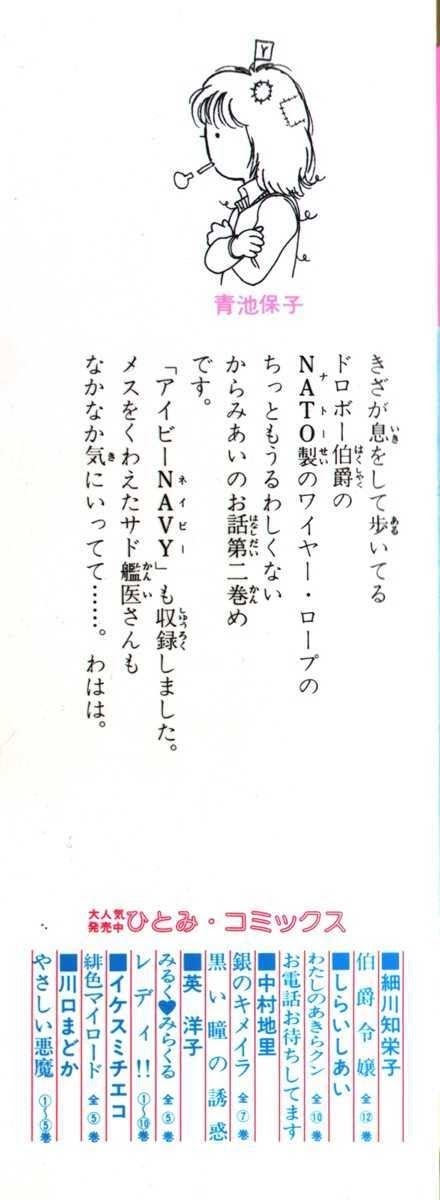 Y
青池保子
きざが息をして歩いてる
ドロボー伯爵の
NATO製のワイヤー・ロープの
ちっともうるわしくない
からみあいのお話第二巻め
です。
「アイビーNAVY」も収録しました。
メスをくわえたサド艦医さんも
なかなか気にいってて……。わはは。
大人気発売中 ひとみ・コミックス
■細川知栄子
伯爵令嬢 全⑫巻
■しらいしあい
わたしのあきらクン 全⑩巻
お電話お待ちしてます
■中村地里
銀のキメイラ 全⑦巻
黒い瞳の誘惑
■英 洋子
みるく♥みらくる 全⑤巻
レディ!! ①〜⑩巻
■イケスミチエコ
緋色マイロード 全⑤巻
■川口まどか
やさしい悪魔 ①〜⑤巻